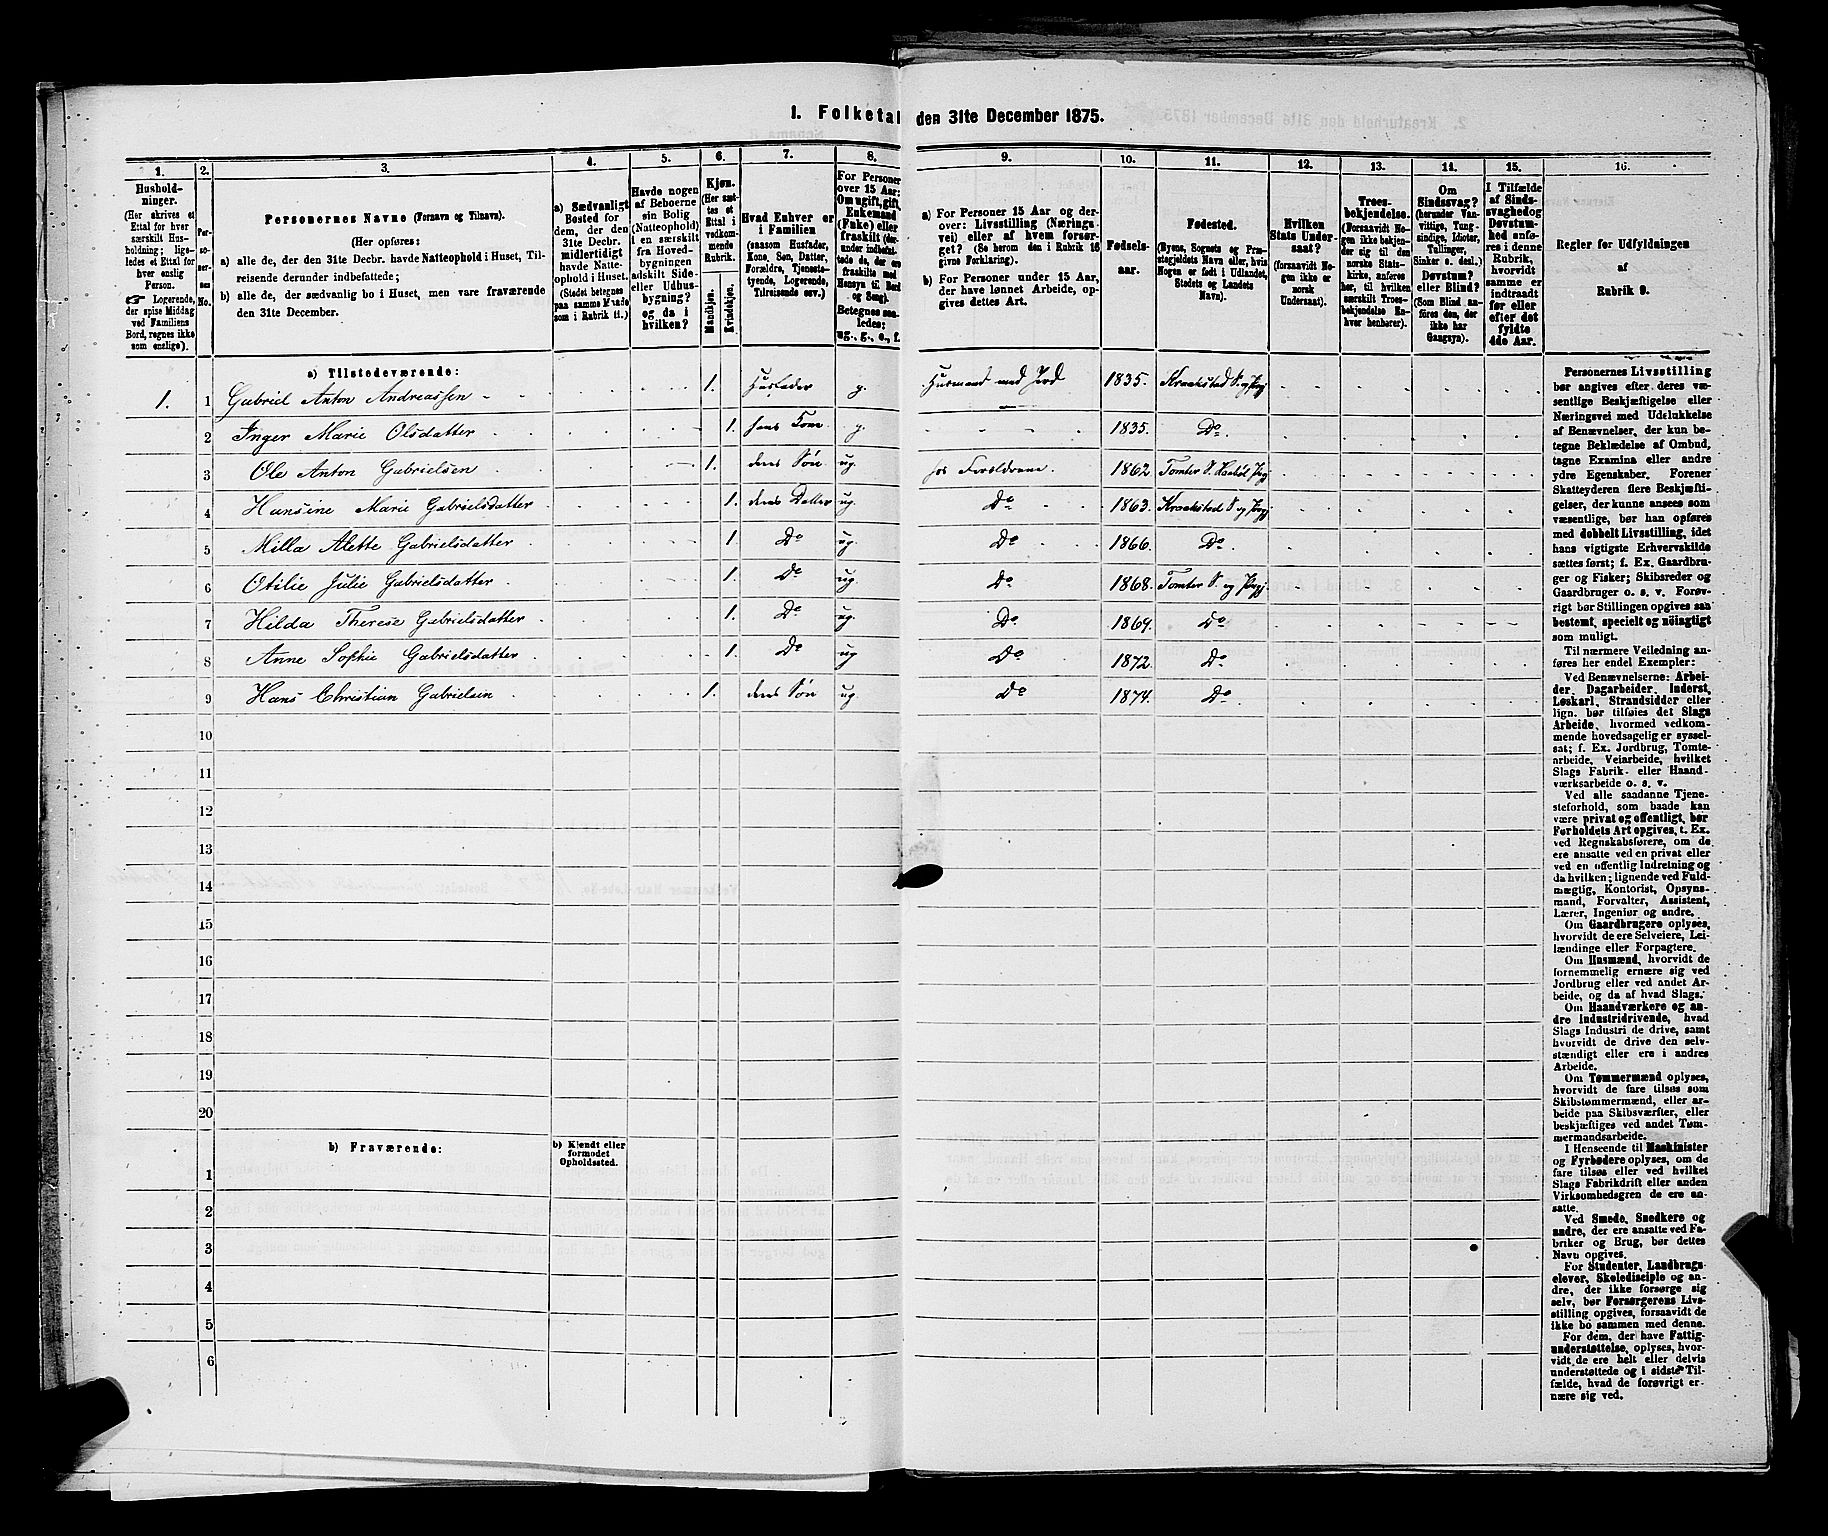 1. Folketal den 31te December 1875.
1. 2. 3. 4. 5. 6. 7. 8. 9. 10. 11. 12. 13. 14. 15. 16.
Hushold-
ninger.
(Her skrives et
Ettal for hver
særskilt Hus-
holdning; lige-
ledes et Ettal for
hver enslig
Person.
☞ Logerende,
der spise Middag
ved Familiens
Bord, regnes ikke
som enslige).
Per-
so-
ner-
nes
No.
Personernes Navne (Fornavn og Tilnavn).
(Her opføres:
a) alle de, der den 31te Decbr. havde Natteophold i Huset, Til-
reisende derunder indbefattede;
b) alle de, der sædvanlig bo i Huset, men vare fraværende
den 31te December.
a) Sædvanligt
Bosted for
dem, der den
31te Decbr.
midlertidigt
havde Natte-
ophold i Huset.
(Stedet betegnes
paa samme Maade
som i Rubrik 11.)
Havde nogen
af Beboerne
sin Bolig
(Natteophold)
i en særskilt
fra Hoved-
bygningen
adskilt Side-
eller Udhus-
bygning?
og da i
hvilken?
Kjøn.
(Her sæt-
tes et
Ettal i
vedkom-
mende
Rubrik.
Mandkjøn.
Kvindekjøn.
Hvad Enhver er
i Familien
(saasom Husfader,
Kone, Søn, Datter,
Forældre, Tjeneste-
tyende, Logerende,
Tilreisende osv.)
For Personer
over 15 Aar:
Om ugift, gift,
Enkemand
(Enke) eller
fraskilt
Betegnes saa-
ledes:
ug., g., e., f.
a) For Personer 15 Aar og der-
over: Livsstilling (Nærings-
vei) eller af hvem forsør-
get? (Se herom den i Rubrik 16
givne Forklaring).
b) For Personer under 15 Aar,
der have lønnet Arbeide, op-
gives dettes Art.
Fødsels-
aar.
Fødested.
(Byens, Sognets og Præ-
stegjeldets Navn eller, hvis
Nogen er født i Udlandet,
Stedets og Landets
Navn).
Hvilken
Stats Under-
saat?
(forsaavidt No-
gen ikke er
norsk
Undersaat).
Troes-
bekjendelse.
(Forsaavidt No-
gen ikke bekjen-
der sig til den
norske Stats-
kirke, anføres
her, til hvilken
særskilt Troes-
bekjendelse En-
hver henhører).
Om
Sindssvag?
(herunder Van-
vittige, Tung-
sindige, Idioter,
Tullinger,
Sinker o. desl.)
Døvstum?
eller Blind?
(Som Blind an-
føres den, der
ikke har
Gangsyn).
I Tilfælde
af Sinds-
svaghed og
Døvstum-
hed anfø-
res i denne
Rubrik,
hvorvidt
samme er
indtraadt
før eller
efter det
fyldte
4de Aar.
Regler for Udfyldningen
af
Rubrik 9.
a) Tilstedeværende:
1. 1 Gabriel Anton Andreassen 1. Husfader g. Husmand med Jord 1835. Kraakstad S. og Prgj
2 Inger Marie Olsdatter 1. hans Kone g. 1835. Do
3 Ole Anton Gabrielsen 1. deres Søn ug. hos Forældrene 1862. Tomter S. Haabøl Prgj
4 Hansine Marie Gabrielsdatter 1. deres Datter ug. Do 1863. Kraakstad S. og Prgj
5 Milla Alette Gabrielsdatter 1. Do ug. Do 1866. Do
6 Otilie Julie Gabrielsdatter 1. Do ug. Do 1868. Tomter S. og Prgj.
7 Hilda Therese Gabrielsdatter 1. Do ug. Do 1869. Do
8 Anne Sophie Gabrielsdatter 1. Do ug. Do 1872. Do
9 Hans Christian Gabrielsen 1. deres Søn ug. Do 1874. Do
10
11
12
13
14
15
16
17
18
19
20
b) Fraværende:
b) Kjendt eller
formodet
Opholdssted.
1
2
3
4
5
6
Personernes Livsstilling
bør angives efter deres væ-
sentlige Beskjæftigelse eller
Næringsvei med Udelukkelse
af Benævnelser, der kun be-
tegne Beklædelse af Ombud,
tagne Examina eller andre
ydre Egenskaber. Forener
Skatteyderen flere Beskjæfti-
gelser, der kunne ansees som
væsentlige, bør han opføres
med dobbelt Livsstilling, idet
hans vigtigste Erhvervskilde
sættes først; f. Ex. Gaardbru-
ger og Fisker; Skibsreder og
Gaardbruger o. s. v. Forøv-
rigt bør Stillingen opgives saa
bestemt, specielt og nöiagtigt
som muligt.
Til nærmere Veiledning an-
føres her endel Exempler:
Ved Benævnelserne: Arbei-
der, Dagarbeider, Inderst,
Løskarl, Strandsidder eller
lign. bør tilføies det Slags
Arbeide, hvormed vedkom-
mende hovedsagelig er syssel-
sat; f. Ex. Jordbrug, Tomte-
arbeide, Veiarbeide, hvilket
Slags Fabrik- eller Haand-
værksarbeide o. s. v.
Ved alle saadanne Tjene-
steforhold, som baade kan
være privat og offentligt, bør
Forholdets Art opgives, t. Ex.
ved Regnskabsførere, om de
ere ansatte ved en privat eller
ved en offentlig Indretning og
da hvilken; lignende ved Fuld-
mægtig, Kontorist, Opsyns-
mand, Forvalter, Assistent,
Lærer, Ingeniør og andre.
Om Gaardbrugere oplyses,
hvorvidt de ere Selveiere, Lei-
lændinge eller Forpagtere.
Om Husmænd, hvorvidt de
fornemmelig ernære sig ved
Jordbrug eller ved andet Ar-
beide, og da af hvad Slags.
Om Haandværkere og an-
dre Industridrivende, hvad
Slags Industri de drive, samt
hvorvidt de drive den selv-
stændigt eller ere i andres
Arbeide.
Om Tømmermænd oplyses,
hvorvidt de fare tilsøs som
Skibstømmermænd, eller ar-
beide paa Skibsværfter, eller
beskjæftiges ved andet Tøm-
mermandsarbeide.
I Henseende til Maskinister
og Fyrbødere oplyses, om de
fare tilsøs eller ved hvilket
Slags Fabrikdrift eller anden
Virksomhedsgren de ere an-
satte.
Ved Smede, Snedkere og
andre, der ere ansatte ved Fa-
briker og Brug, bør dettes
Navn opgives.
For Studenter, Landbrugs-
elever, Skoledisciple og an-
dre, der ikke forsørge sig
selv, bør Forsørgerens Livs-
stilling opgives, forsaavidt de
ikke bo sammen med denne.
For dem, der have Fattig-
understøttelse, oplyses, hvor-
vidt de ere helt eller delvis
understøttede og i sidste Til-
fælde, hvad de forøvrigt er-
nære sig ved.